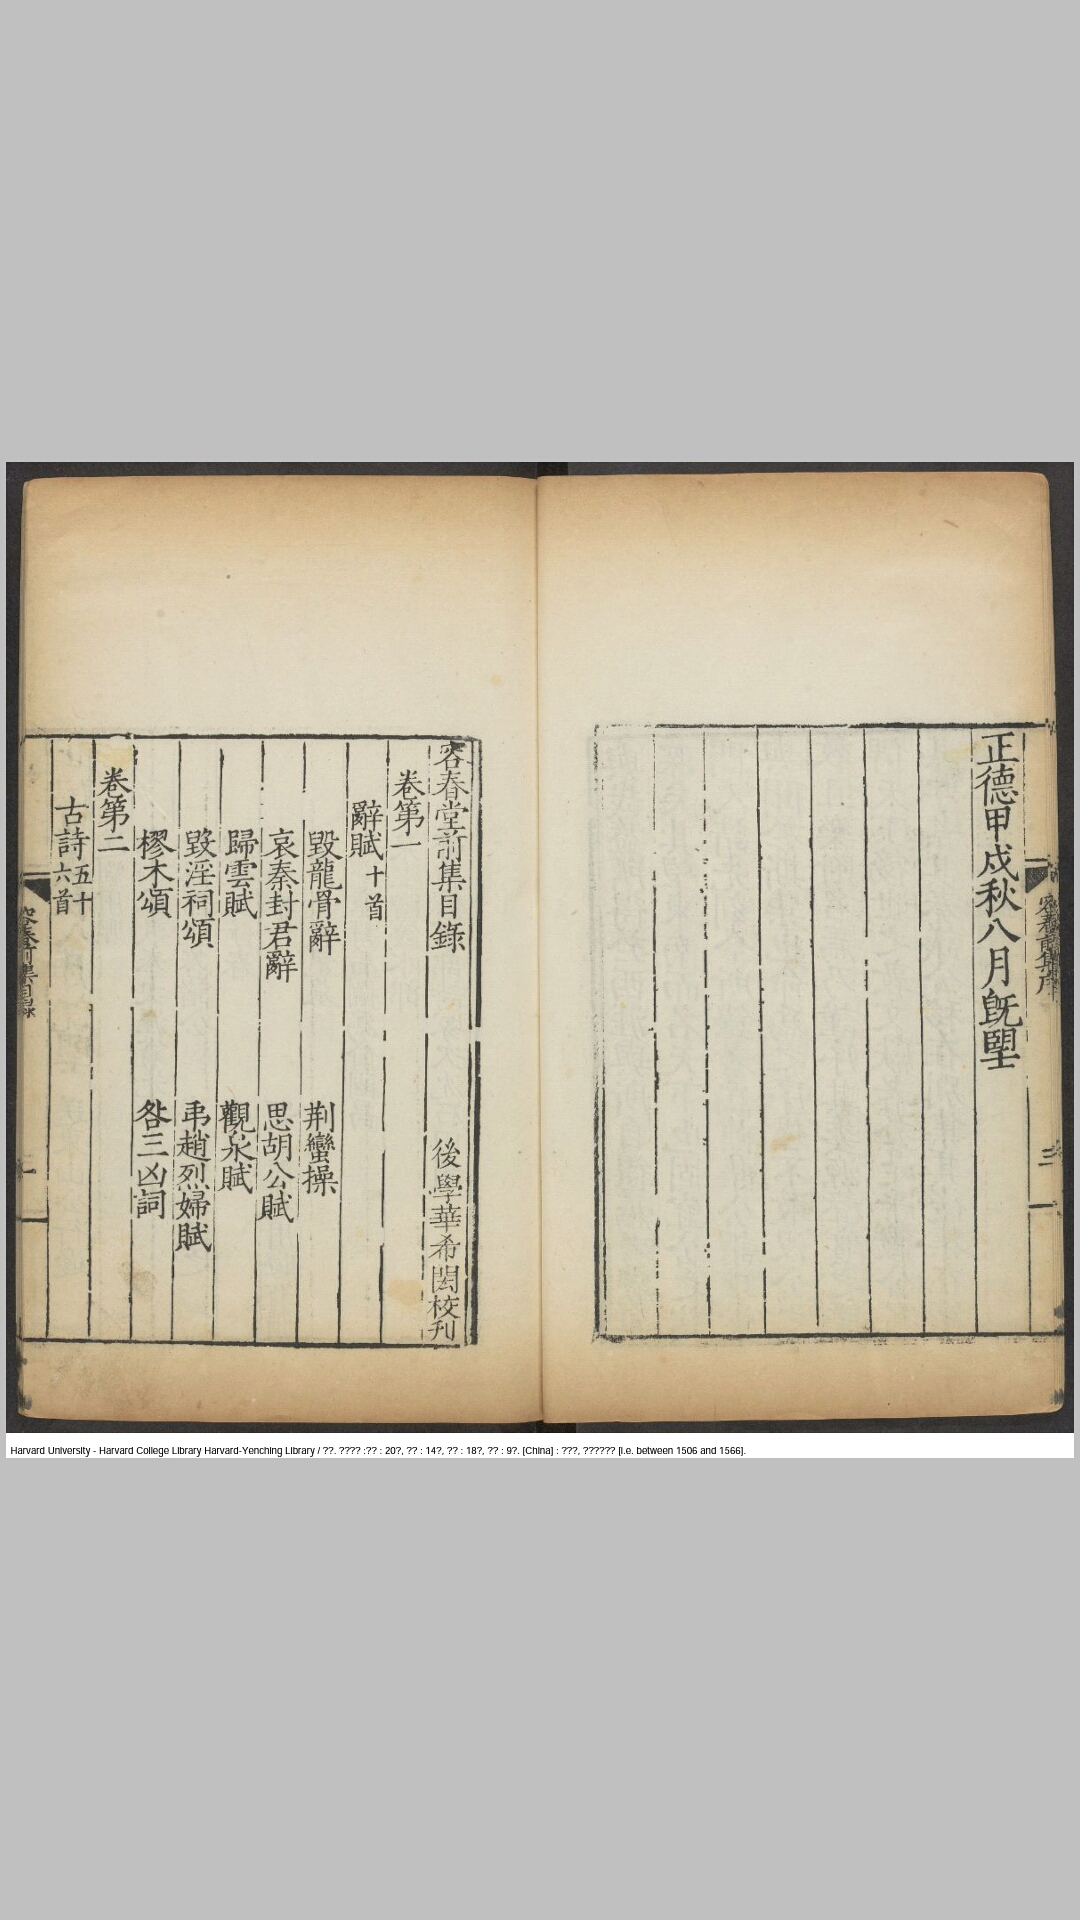 正德甲戌秋八月旣朢
容春前集序
三
容春堂前集目錄
後學華希閎校刊
卷第一
辭賦十首
毀龍骨辭
荆蠻操
哀秦封君辭
思胡公賦
歸雲賦
觀泉賦
毀淫祠頌
弔趙烈婦賦
樛木頌
咎三凶詞
卷第二
古詩五十六首
容春前集目錄
一
Harvard University - Harvard College Library Harvard-Yenching Library / ??. ???? :?? : 20?, ?? : 14?, ?? : 18?, ?? : 9?. [China] : ???, ?????? [i.e. between 1506 and 1566].